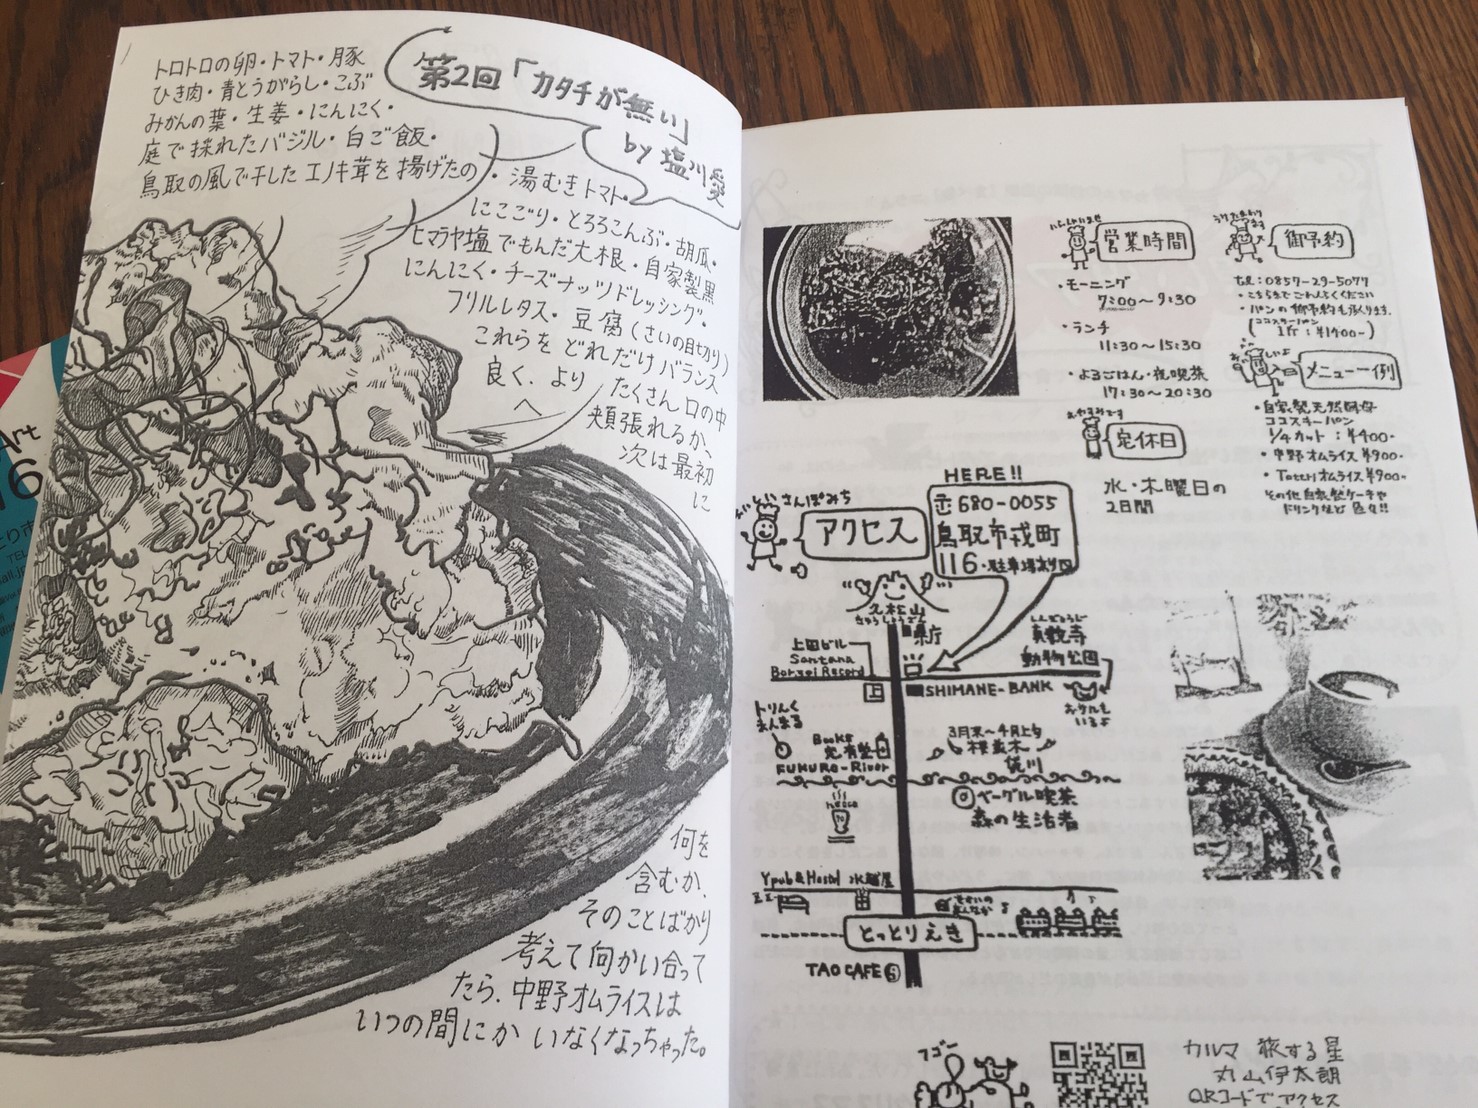 第2回「カタチが無い」
by 塩川愛
トロトロの卵・トマト・豚
ひき肉・青とうがらし・こぶ
みかんの葉・生姜・にんにく・
庭で採れたバジル・白ご飯・
鳥取の風で干したエノキ茸を揚げたの
・湯むきトマト・
にこごり・とろろこんぶ・胡瓜・
ヒマラヤ塩でもんだ大根・自家製黒
にんにく・チーズナッツドレッシング・
フリルレタス・豆腐(さいの目切り)
これらをどれだけバランス
良く、より たくさん口の中
へ 頬張れるか、
次は最初
に
何を
含むか、
そのことばかり
考えて向かい合って
たら、中野オムライスは
いつの間にか いなくなっちゃった。
Art
16
営業時間
・モーニング
7:00〜9:30
・ランチ
11:30〜15:30
・よるごはん・夜喫茶
17:30〜20:30
おやすみです
定休日
水・木曜日の
2日間
御予約
TEL:0857-29-5077
・こちらまでごれんらくください
・パンの御予約も承ります。
(ココスキーパン
1斤:¥1400-)
メニュー一例
・自家製天然酵母
ココスキーパン
1/4カット:¥400-
・中野オムライス¥900-
・Tottoriオムライス¥900-
その他自家製ケーキや
ドリンクなど色々!!
さんぽみち
アクセス
HERE!!
〒680-0055
鳥取市戎町
116・駐車場あり
久松山
きゅうしょうざん
県庁
上田ビル
Santana
Borzoi Record
上
SHIMANE-BANK
真教寺
動物公園
トリんく
まんまる
Books
定有堂
FUKURO-River
3月末〜4月上旬
桜並木
袋川
ベーグル喫茶
森の生活者
Y Pub & Hostel
とっとりえき
TAO CAFE
フゴー
カルマ 旅する星
丸山伊太朗
QRコードでアクセス